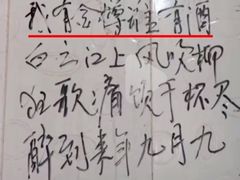 我有金樽谁有酒
白云江上风吹柳
狂歌痛饮千杯尽
醉到来年九月九